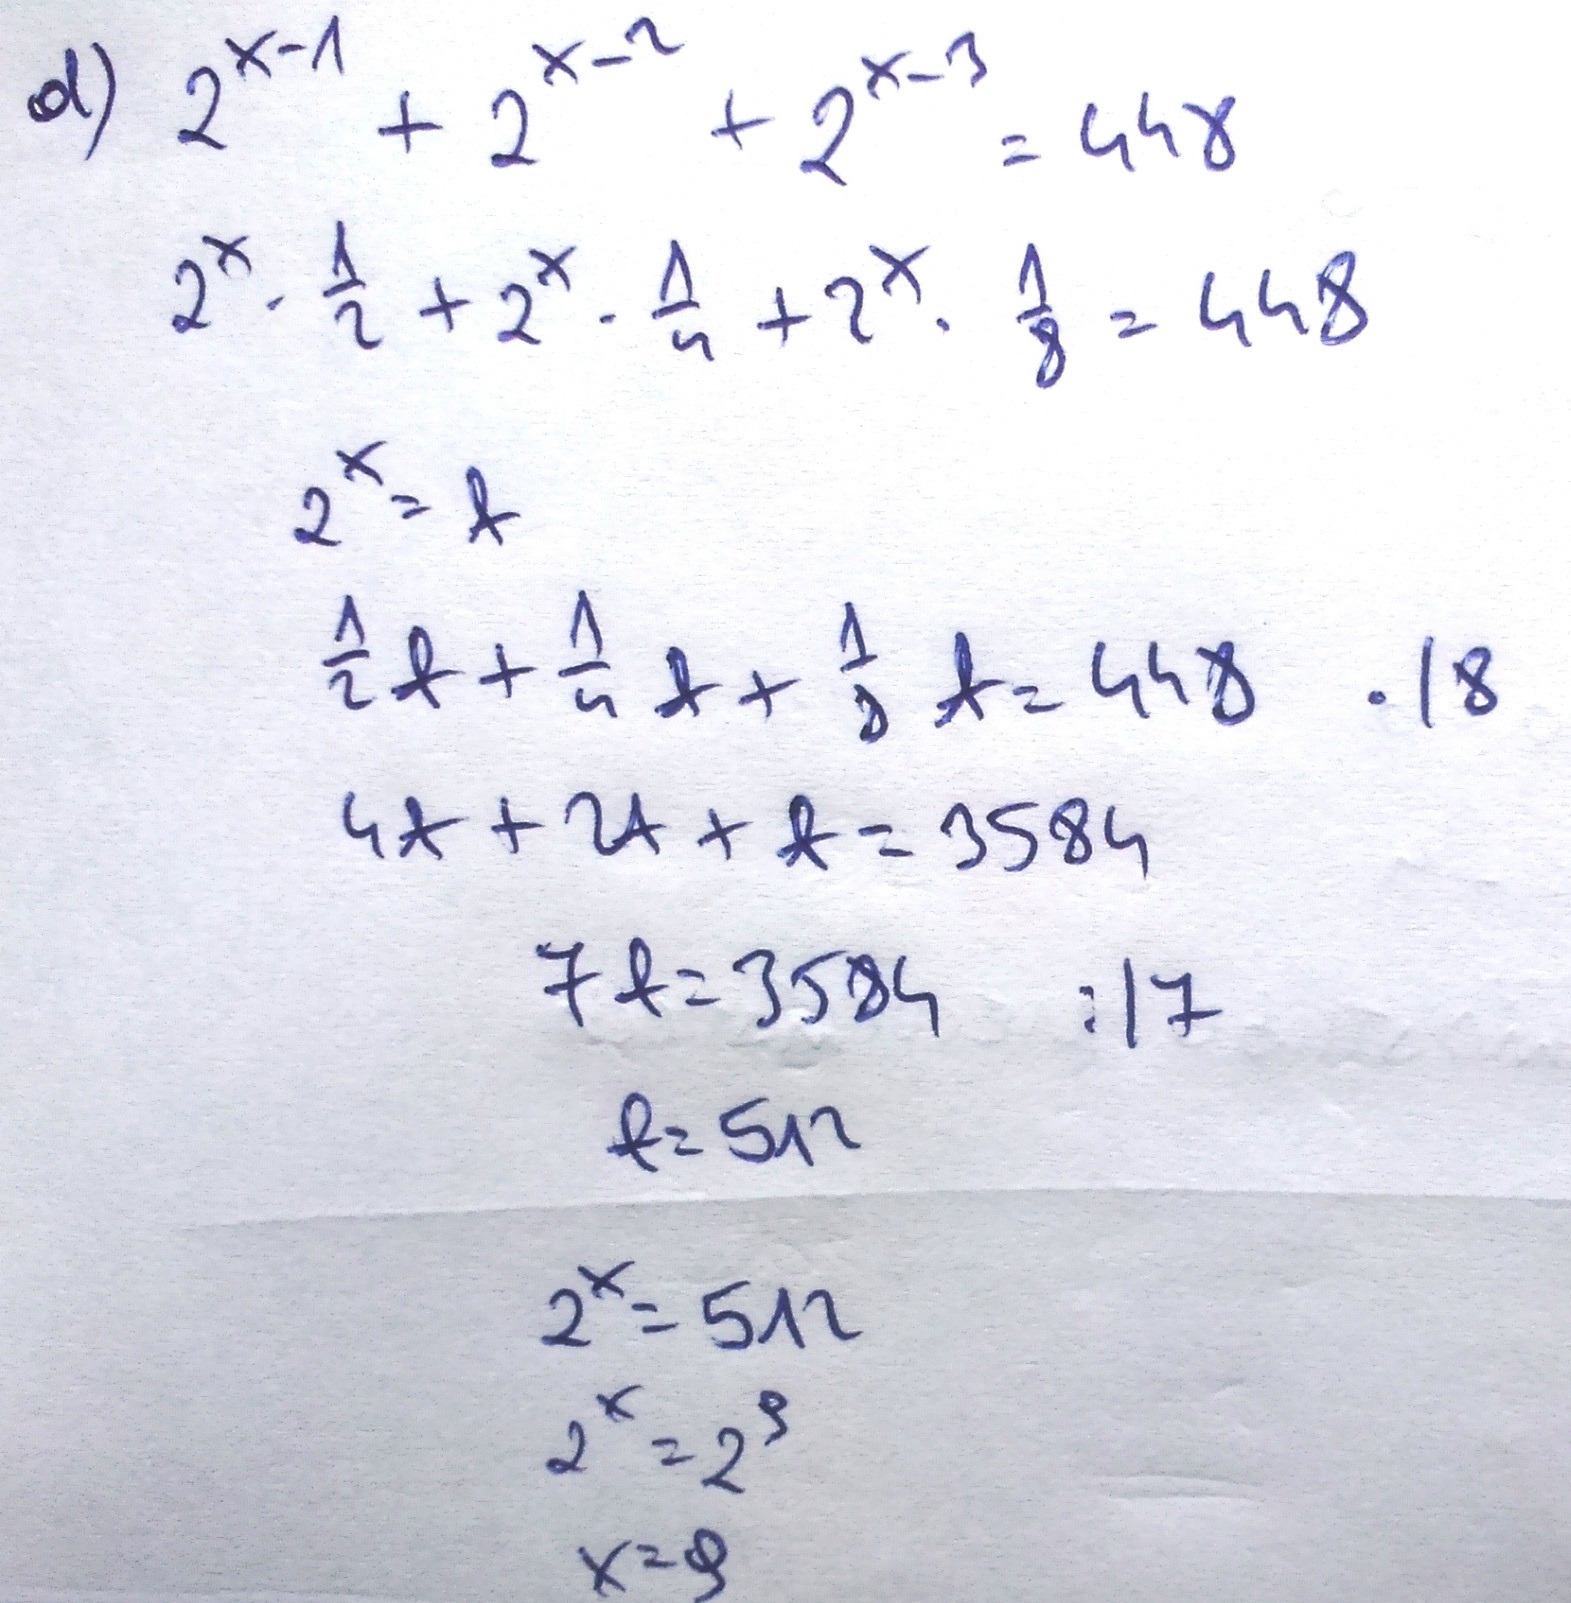 d) 2^{x-1} + 2^{x-2} + 2^{x-3} = 448
2^x · 1/2 + 2^x · 1/4 + 2^x · 1/8 = 448
2^x = t
1/2 t + 1/4 t + 1/8 t = 448 ·|8
4t + 2t + t = 3584
7t = 3584 :|7
t = 512
2^x = 512
2^x = 2^9
x = 9